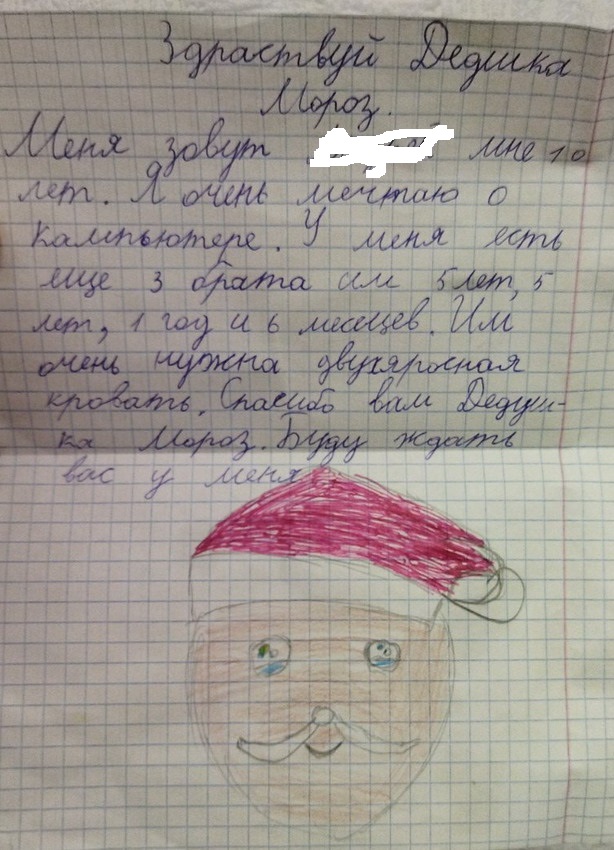 Здраствуй Дедушка
Мороз.
Меня зовут мне 10
лет. Я очень мечтаю о
кампьютере. У меня есть
еще 3 брата им 5 лет, 5
лет, 1 год и 6 месецев. Им
очень нужна двухяросная
кровать. Спасибо вам Дедуш-
ка Мороз. Буду ждать
вас у меня